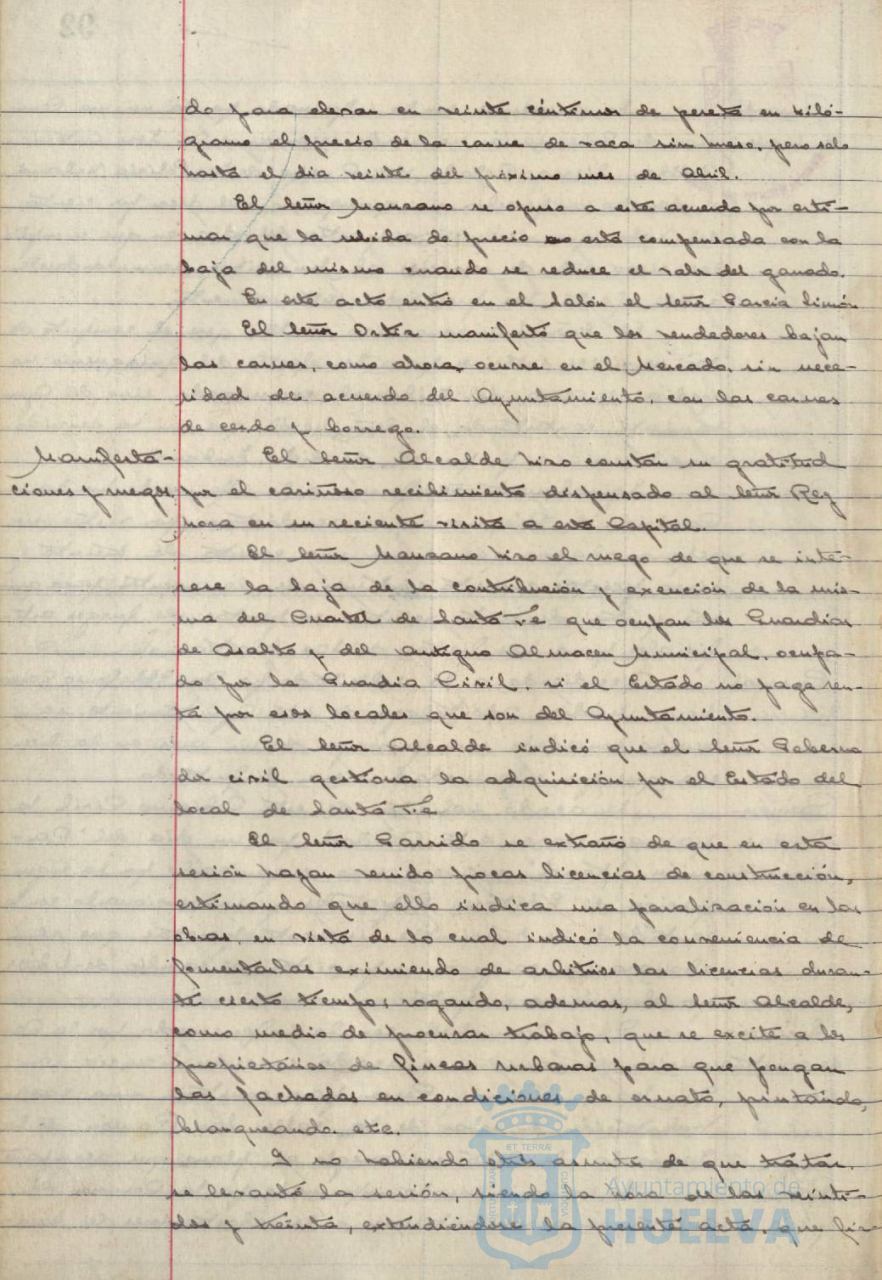 do para elevar en veinte céntimos de peseta en kiló-
gramo el precio de la carne de vaca sin hueso, pero solo
hasta el dia veinte del próximo mes de Abril.
El señor Manzano se opuso a este acuerdo por esti-
mar que la subida de precio no está compensada con la
baja del mismo cuando se reduce el valor del ganado.
En este acto entró en el Salón el señor García Simón
El señor Ortiz manifestó que los vendedores bajan
las carnes, como ahora ocurre en el Mercado, sin nece-
sidad de acuerdo del Ayuntamiento, con las carnes
de cerdo y borrego.
Manifesta-
ciones y ruegos.
El señor Alcalde hizo constar su gratitud
por el cariñoso recibimiento dispensado al señor Rey
Mora en su reciente visita a esta Capital.
El señor Manzano hizo el ruego de que se inte-
rese la baja de la contribución y exención de la mis-
ma del Cuartel de Santa Fé que ocupan los Guardias
de Asalto y del antiguo Almacen Municipal, ocupa-
do por la Guardia Civil, si el Estado no paga ren-
ta por esos locales que son del Ayuntamiento.
El señor Alcalde indicó que el señor Goberna
dor civil gestiona la adquisición por el Estado del
local de Santa Fé
El señor Garrido se extrañó de que en esta
sesión hayan venido pocas licencias de construcción,
estimando que ello indica una paralización en las
obras, en vista de lo cual indicó la conveniencia de
fomentarlas eximiendo de arbitrios las licencias duran-
te cierto tiempo; rogando, ademas, al señor Alcalde,
como medio de procurar trabajo, que se excite a los
propietarios de fincas urbanas para que pongan
las fachadas en condiciones de ornato, pintando,
blanqueando etc.
Y no habiendo otros asuntos de que tratar,
se levantó la sesión, siendo la hora de las veinti-
dos y treinta, extendiéndose la presente acta, que fir-
Ayuntamiento de
HUELVA